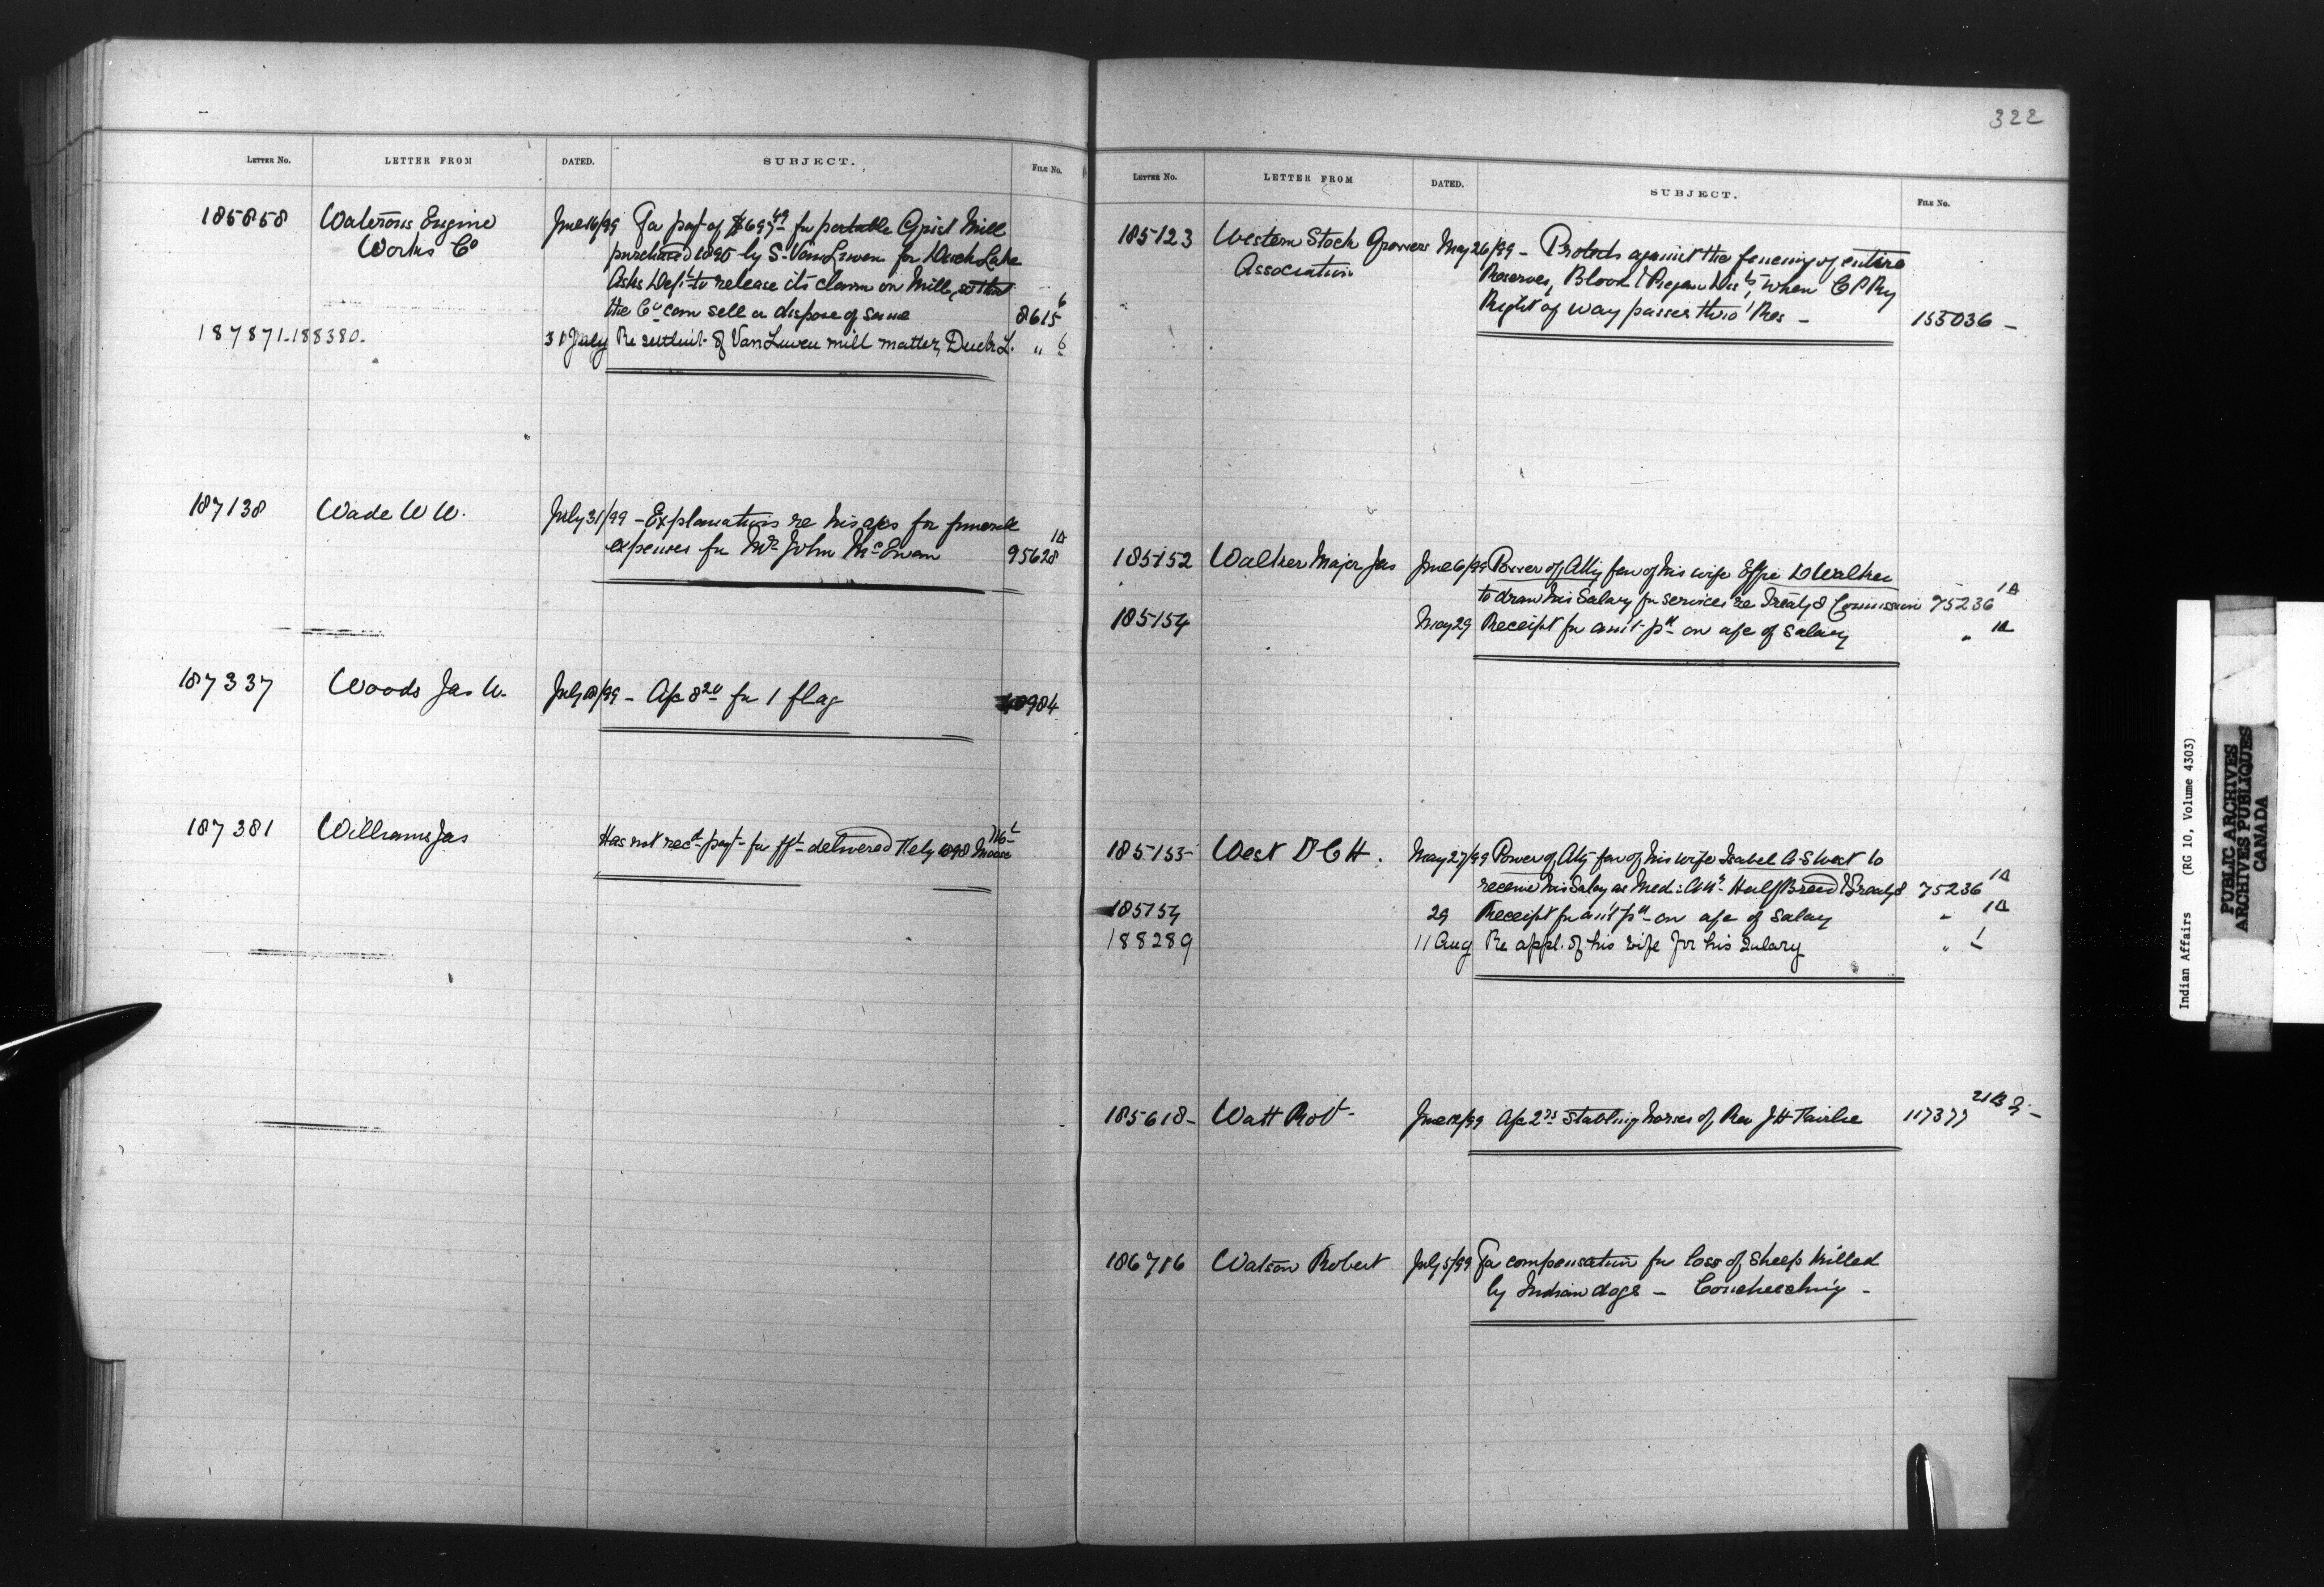 322
LETTER NO. LETTER FROM DATED. SUBJECT. FILE No.
185858 Waterous Engine June 16/99 For payt of $697.49 for portable Grist Mill
Works Co purchased 1895 by S. Van Luven for Duck Lake
Asks Dept to release its claim on Mill, so that
the Co can sell or dispose of same 8615 6
187871-188380. 31 July Re settlmt. of Van Luven mill matter, Duck L. " 6
187138 Wade W W. July 31/99 - Explanations re his a/cs for funeral
expenses for Mr John McEwen 95628 1A
187337 Woods Jas W. July 18/99 - A/c 8 20 for 1 flag 40984
187381 Williams Jas Has not recd payt for delivered 1898 Moose Mt
LETTER NO. LETTER FROM DATED. SUBJECT. FILE No.
185123 Western Stock Growers May 26/99 - Protests against the fencing of entire
Association Reserves, Blood & Piegan when C P Ry
Right of way passes thro' Res - 155036 -
185152 Walker Major Jas June 6/99 Power of Atty fav of his wife Effie D Walker
to draw his Salary for services re Treaty 8 Commission 75236 1A
185154 May 29 Receipt for amt pd on a/c of salary " 1A
185153 West D C H. May 27/99 Power of Atty fav of his wife Isabel G S West to
receive his Salary as Med: Half Breed & Treaty 8 75236 1A
185154 29 Receipt for amt pd on a/c of salary " 1A
188289 11 Aug Re appl. of his wife for his salary " 1
185618- Watt Robt- June 12/99 A/c 2 75 stabling horses of Rev J H Fairlie 117377 21
186716 Watson Robert July 5/99 For compensation for loss of sheep killed
by Indian dogs - Couchiching -
Indian Affairs (RG 10, Volume 4303)
PUBLIC ARCHIVES
ARCHIVES PUBLIQUES
CANADA